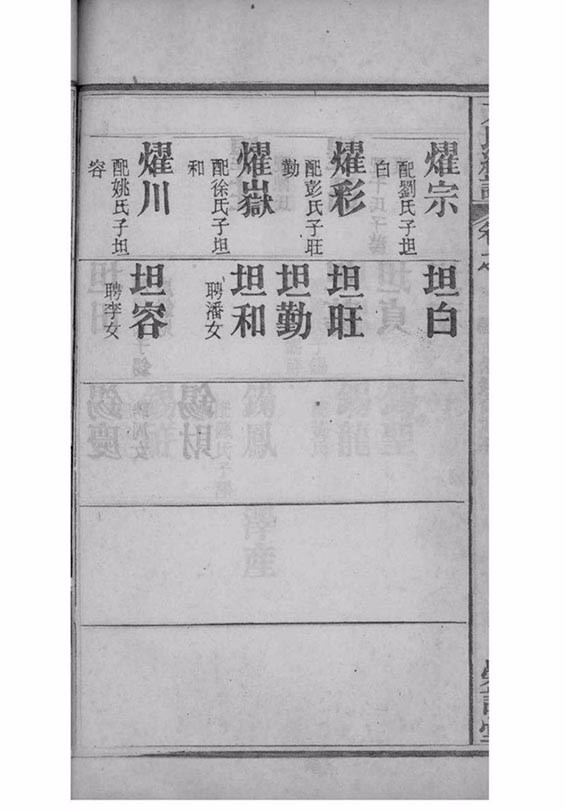 燿宗
配劉氏子坦
白
燿彩
配彭氏子旺
勤
燿嶽
配徐氏子坦
和
燿川
配姚氏子坦
容
坦白
坦旺
坦勤
坦和
聘潘女
坦容
聘李女